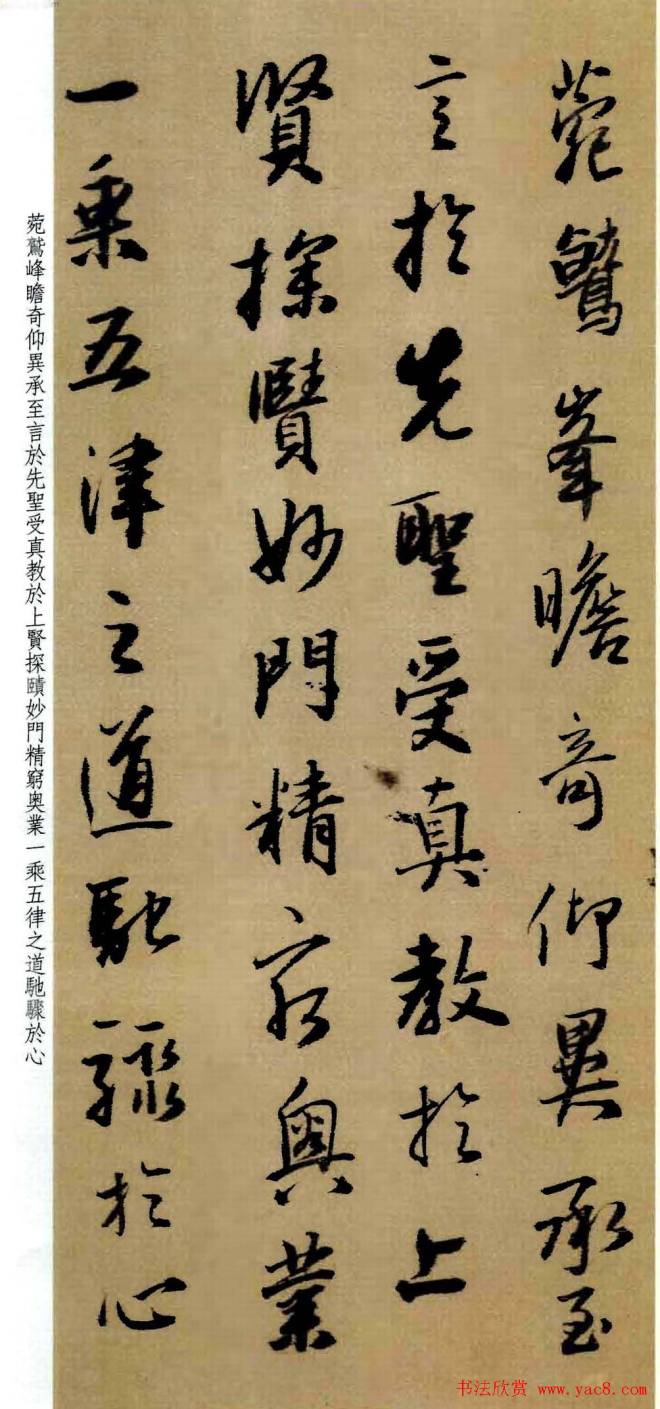 菀鷲峯瞻奇仰異承至
言於先聖受真教於上
賢探賾妙門精窮奧業
一乘五津之道馳驟於心
菀鷲峰瞻奇仰異承至言於先聖受真教於上賢探賾妙門精窮奧業一乘五律之道馳驟於心
书法欣赏 www.yac8.com